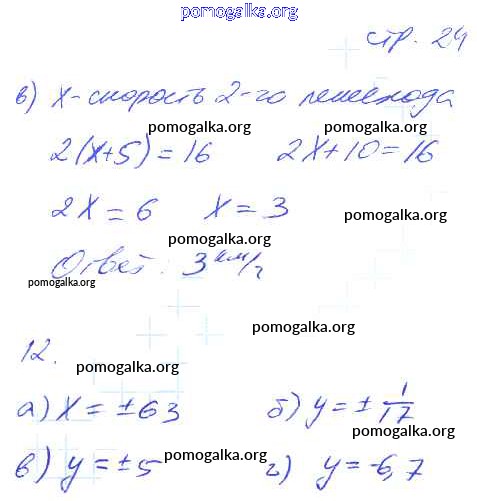 pomogalka.org
стр. 24
в) х - скорость 2-го пешехода
pomogalka.org
2(х+5) = 16 2х+10=16
pomogalka.org
2х = 6 х = 3
pomogalka.org
pomogalka.org
Ответ: 3 км/ч
pomogalka.org
pomogalka.org
12.
pomogalka.org
а) х = ±63 б) y = ± 1/17
pomogalka.org
в) y = ±5 г) y = -6,7
pomogalka.org
pomogalka.org